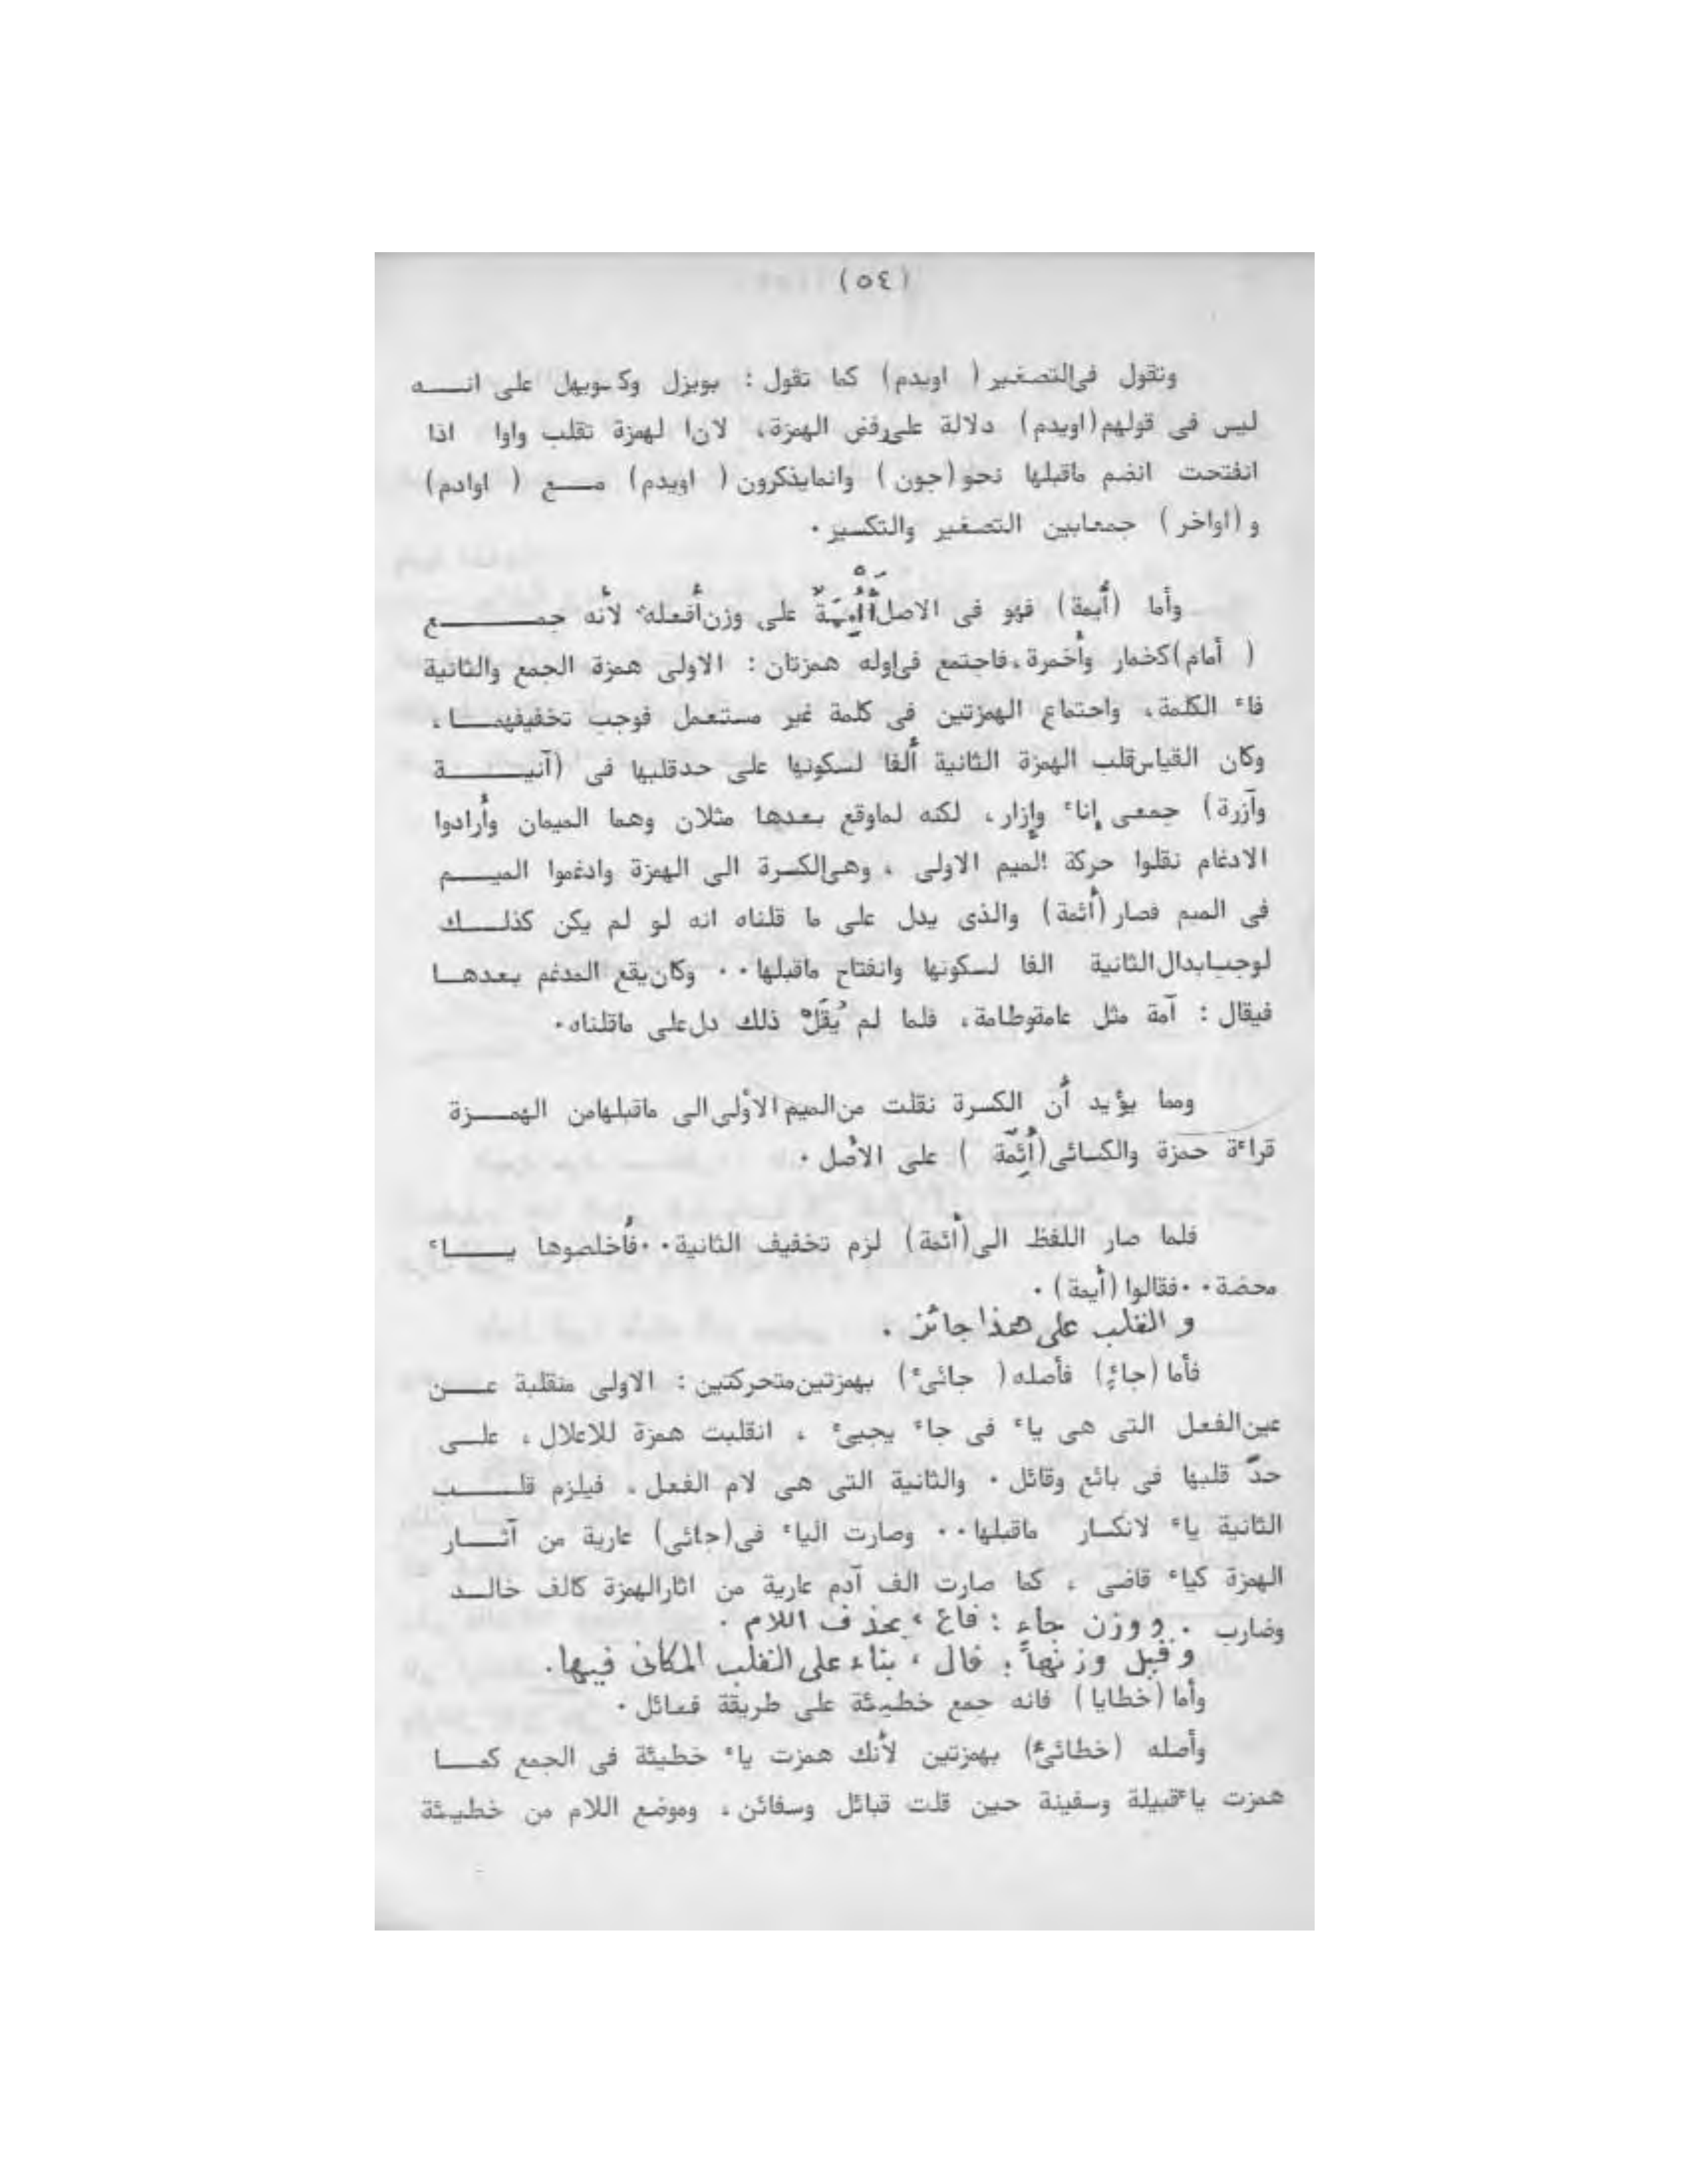 (٥٤)
وتقول فى التصغير ( اويدم) كما تقول : بويزل وكويهل على انه
ليس فى قولهم (اويدم) دلالة على رفض الهمزة، لان الهمزة تقلب واوا اذا
انفتحت انضم ماقبلها نحو (جون ) وانما يذكرون ( اويدم) مع ( اوادم)
و (اواخر ) جمعا بين التصغير والتكسير .
وأما (أيمة) فهو فى الاصل أأمِمَة على وزن أفعله لأنه جمع
( أمام) كخمار وأخمرة، فاجتمع فى اوله همزتان : الاولى همزة الجمع والثانية
فاء الكلمة، واحتماع الهمزتين فى كلمة غير مستعمل فوجب تخفيفهما ،
وكان القياس قلب الهمزة الثانية ألفا لسكونها على حد قلبها فى (آنية
وآزرة) جمعى إناء وإزار، لكنه لما وقع بعدها مثلان وهما الميمان وأرادوا
الادغام نقلوا حركة الميم الاولى ، وهى الكسرة الى الهمزة وادغموا الميم
فى الميم فصار (أئمة) والذى يدل على ما قلناه انه لو لم يكن كذلك
لوجب ابدال الثانية الفا لسكونها وانفتاح ماقبلها .. وكان يقع المدغم بعدها
فيقال : آمة مثل عامة وطامة، فلما لم يُقَلْ ذلك دل على ماقلناه .
ومما يؤيد أن الكسرة نقلت من الميم الأولى الى ماقبلها من الهمزة
قراءة حمزة والكسائى (أئِمّة ) على الأصل .
فلما صار اللفظ الى (أئمة) لزم تخفيف الثانية .. فأخلصوها ياء
محضة .. فقالوا (أيمة) .
و القلب على هذا جائز .
فأما (جاءٍ) فأصله ( جائىء) بهمزتين متحركتين : الاولى منقلبة عن
عين الفعل التى هى ياء فى جاء يجيىء ، انقلبت همزة للاعلال ، على
حدّ قلبها فى بائع وقائل . والثانية التى هى لام الفعل ، فيلزم قلب
الثانية ياء لانكسار ماقبلها .. وصارت الياء فى (جائى) عارية من آثار
الهمزة كياء قاضى ، كما صارت الف آدم عارية من اثار الهمزة كالف خالد
وضارب . ووزن جاءٍ : فاعٍ ، بحذف اللام .
وقيل وزنها : فال ، بناء على القلب المكانى فيها .
وأما (خطايا ) فانه جمع خطيئة على طريقة فعائل .
وأصله (خطائىء) بهمزتين لأنك همزت ياء خطيئة فى الجمع كما
همزت ياء قبيلة وسفينة حين قلت قبائل وسفائن ، وموضع اللام من خطيئة